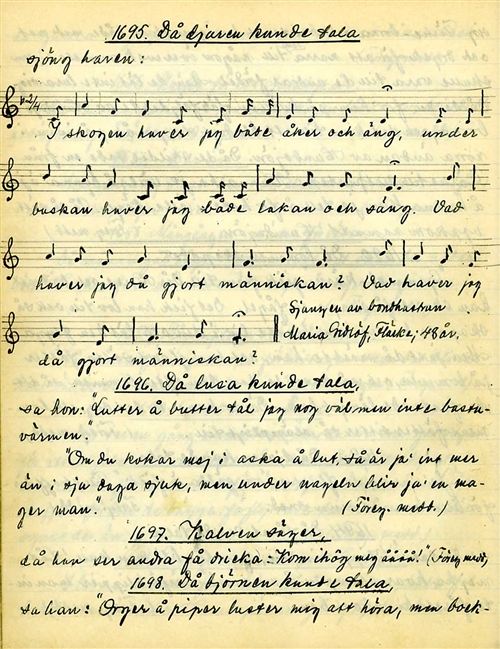 1695. Då djuren kunde tala
sjöng haren:
2/4
I skogen haver jag både åker och äng, under
buskan haver jag både lakan och säng. Vad
haver jag då gjort människan? Vad haver jag
Sjungen av bondhustrun
Maria Fridlöf, Fläcke, 48 år.
då gjort människan?
1696. Då lusa kunde tala,
sa hon: "Lutter å butter tål jag nog väl men inte bastu-
värmen."
"Om du kokar mej i aska å lut, så är ja' int mer
än i sju daga sjuk, men under nageln blir ja' en ma-
ger man."
(Föreg. medd.)
1697. Kalven säger,
då han ser andra få dricka: Kom ihåg meg åååå!" (Föreg. medd.)
1698. Då björnen kunde tala,
sa han: "Orger å piper luster mig att höra, men bock-